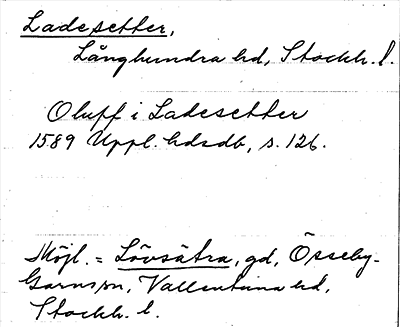 Ladesetter,
Långhundra hd, Stockh. l.
Oluff i Ladesetter
1589 Uppl. hdsdb, s. 126.
Möjl. = Lövsätra, gd, Össeby-
Garns sn, Vallentuna hd,
Stockh. l.